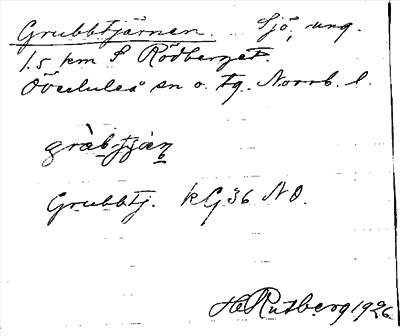 Grubbtjärnen. Sjö, ung.
1.5 km S Rödberget.
Överluleå sn o. tg. Norrb. l.
gràb-tjà̤n̥
Grubbtj. kG36 NO.
H Rutberg 1926.